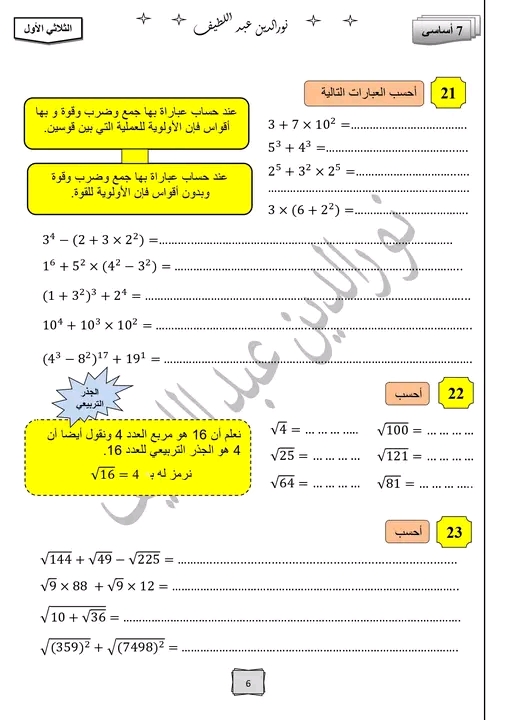 7 أساسي
نورالدين عبد اللطيف
الثلاثي الأول
21
أحسب العبارات التالية
عند حساب عباراة بها جمع وضرب وقوة و بها
أقواس فإن الأولوية للعملية التي بين قوسين.
عند حساب عباراة بها جمع وضرب وقوة
وبدون أقواس فإن الأولوية للقوة.
3 + 7 × 10² =......................................
5³ + 4³ =..............................................
2⁵ + 3² × 2⁵ =....................................
..................................................................
3 × (6 + 2²) =.....................................
3⁴ − (2 + 3 × 2²) =................................................................................................
1⁶ + 5² × (4² − 3²) = ..............................................................................................
(1 + 3²)³ + 2⁴ = ..........................................................................................................
10⁴ + 10³ × 10² = .......................................................................................................
(4³ − 8²)¹⁷ + 19¹ = .....................................................................................................
22
أحسب
الجذر
التربيعي
نعلم أن 16 هو مربع العدد 4 ونقول أيضا أن
4 هو الجذر التربيعي للعدد 16.
نرمز له بـ √16 = 4
√4 = ... ... ... ..... √100 = ... ... ... ...
√25 = ... ... ... ... √121 = ... ... ... ...
√64 = ... ... ... ... √81 = ... ... ... .....
23
أحسب
√144 + √49 − √225 = ............................................................................................
√9 × 88 + √9 × 12 = ..............................................................................................
√(10 + √36) = ..............................................................................................................
√(359)² + √(7498)² = ...........................................................................................
نورالدين عبد اللطيف
6